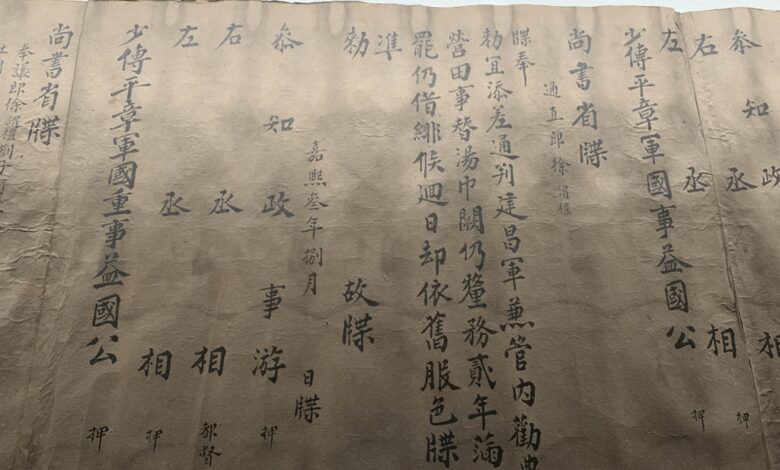 叅知政
右丞相 押
左丞相 押
少傅平章軍國事益國公
尚書省牒
通直郎徐謂禮
牒奉
勑宜添差通判建昌軍兼管内勸農
營田事替湯巾闕仍釐務貳年滿
罷仍借緋候迴日却依舊服色牒
准
勑故牒
嘉熙叁年捌月 日牒
叅知政事游 押
右丞相 都督
左丞相 押
少傅平章軍國重事益國公 押
尚書省牒
奉議郎徐謂禮